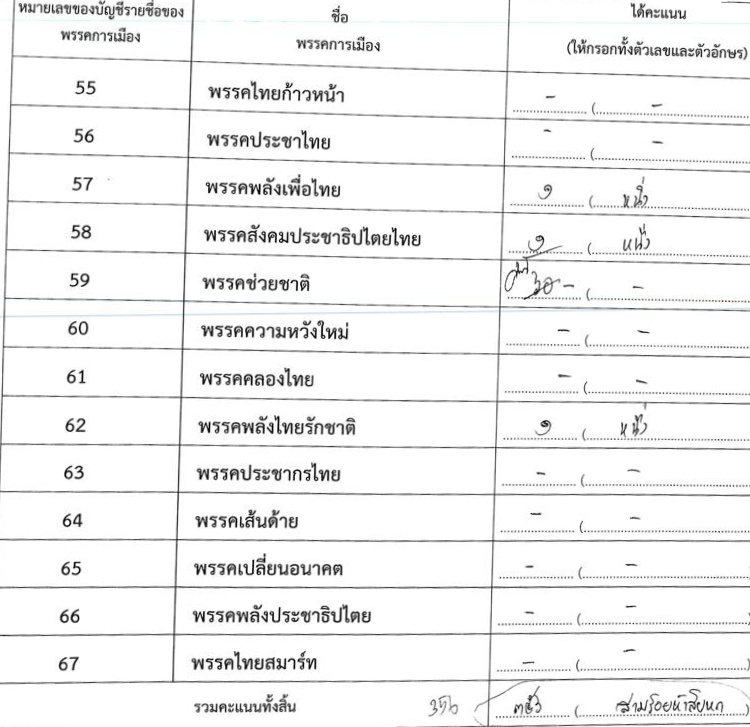 หมายเลขของบัญชีรายชื่อของ
พรรคการเมือง
ชื่อ
พรรคการเมือง
ได้คะแนน
(ให้กรอกทั้งตัวเลขและตัวอักษร)
55 พรรคไทยก้าวหน้า - ( -
56 พรรคประชาไทย - ( -
57 พรรคพลังเพื่อไทย ๑ ( หนึ่ง
58 พรรคสังคมประชาธิปไตยไทย ๑ ( หนึ่ง
59 พรรคช่วยชาติ - ( -
60 พรรคความหวังใหม่ - ( -
61 พรรคคลองไทย - ( -
62 พรรคพลังไทยรักชาติ ๑ ( หนึ่ง
63 พรรคประชากรไทย - ( -
64 พรรคเส้นด้าย - ( -
65 พรรคเปลี่ยนอนาคต - ( -
66 พรรคพลังประชาธิปไตย - ( -
67 พรรคไทยสมาร์ท - ( - )
รวมคะแนนทั้งสิ้น 356 ๓๕๖ ( สามร้อยห้าสิบหก )